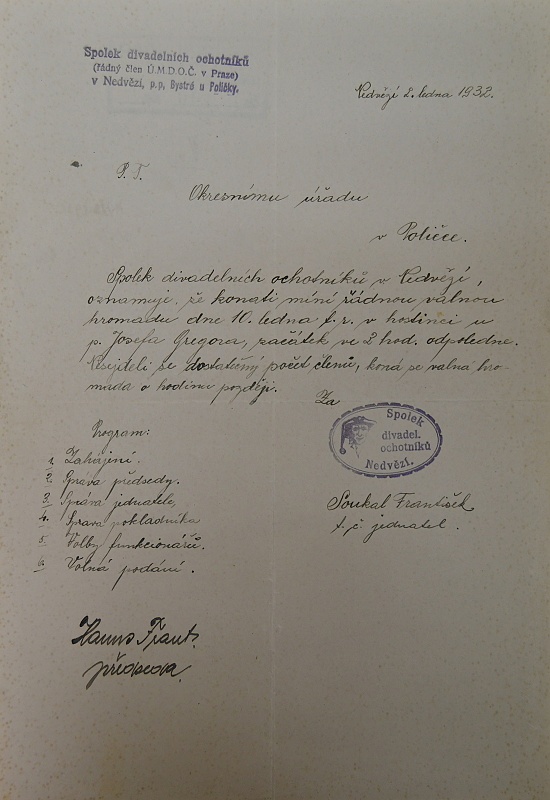 Spolek divadelních ochotníků
(řádný člen Ú.M.D.O.Č. v Praze)
v Nedvězí, p.p. Bystré u Poličky.
Nedvězí 2. ledna 1932.
P. T.
Okresnímu úřadu
v Poličce.
Spolek divadelních ochotníků v Nedvězí,
oznamuje, že konati míní řádnou valnou
hromadu dne 10. ledna t. r. v hostinci u
p. Josefa Gregora, začátek ve 2 hod. odpoledne.
Nesejdeli se dostatečný počet členů, koná se valná hro-
mada o hodinu později.
Za
Spolek
divadel.
ochotníků
Nedvězí.
Program:
1. Zahájení.
2. Správa předsedy.
3. Správa jednatele,
4. Sprava pokladníka
5. Volby funkcionářů.
6. Volná podání.
Soukal František
t. č. jednatel.
Hanns Frant.
předseda.